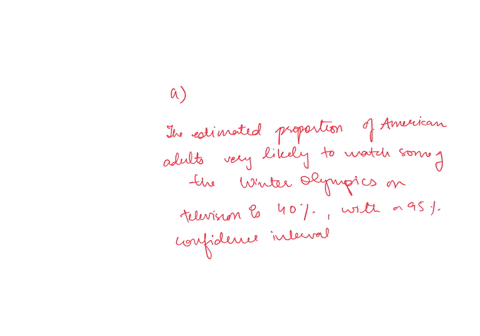 a)
The estimated proportion of American
adults very likely to watch some of
the Winter Olympics on
television is 40%, with a 95%
confidence interval